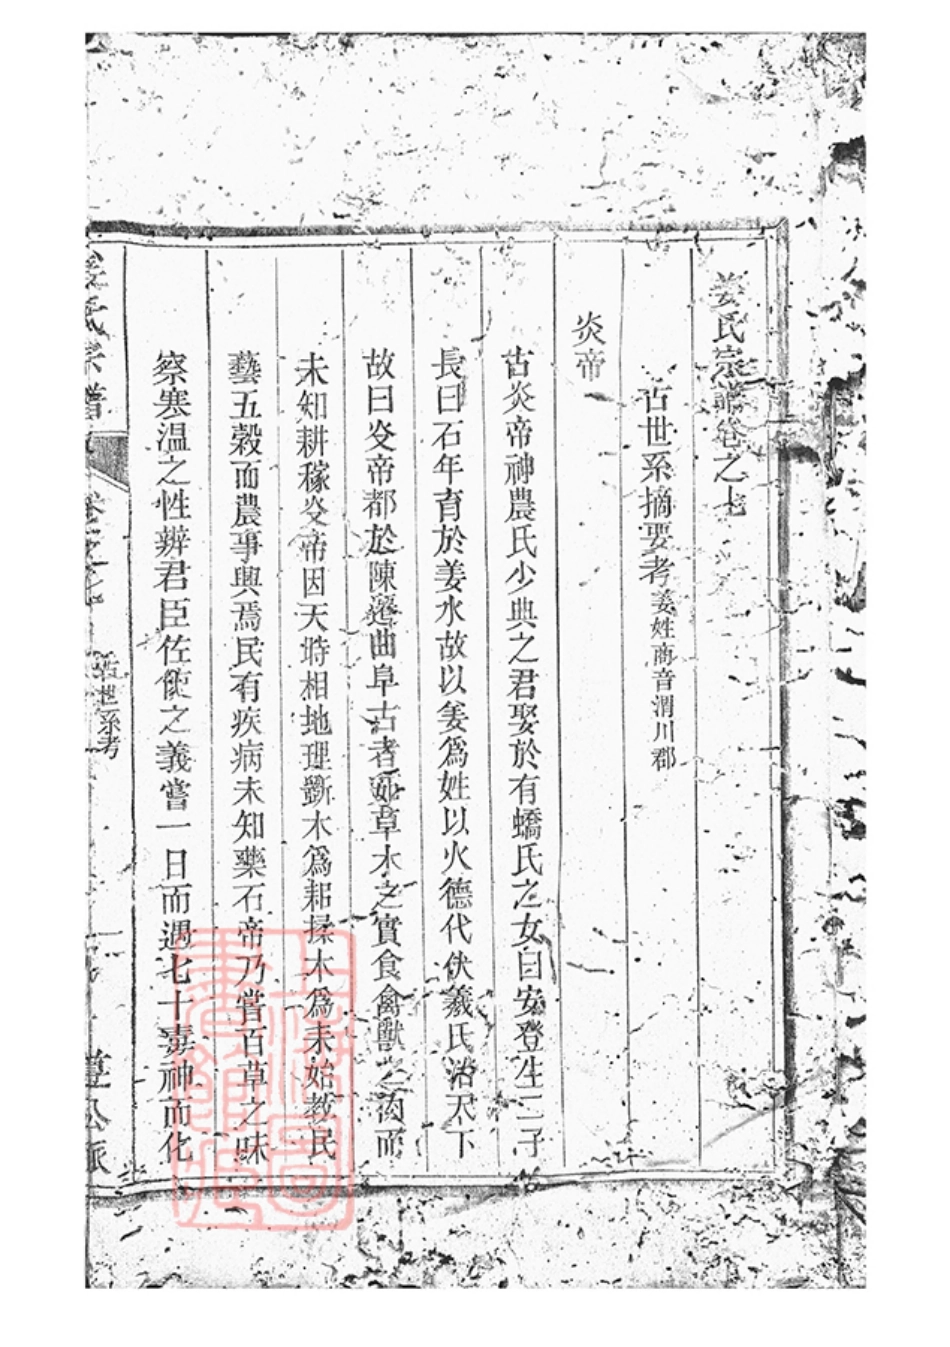 姜氏宗譜卷之七
古世系摘要考姜姓商音渭川郡
炎帝
古炎帝神農氏少典之君娶於有蟜氏之女曰安登生二子
長曰石年育於姜水故以姜爲姓以火德代伏羲氏治天下
故曰炎帝都於陳遷曲阜古者茹草木之實食禽獸之肉而
未知耕稼炎帝因天時相地理斵木爲耜揉木爲耒始教民
藝五穀而農事興焉民有疾病未知藥石帝乃嘗百草之味
察寒温之性辨君臣佐使之義嘗一日而遇七十毒神而化
姜氏宗譜
卷之七
古世系考
上海圖書館藏